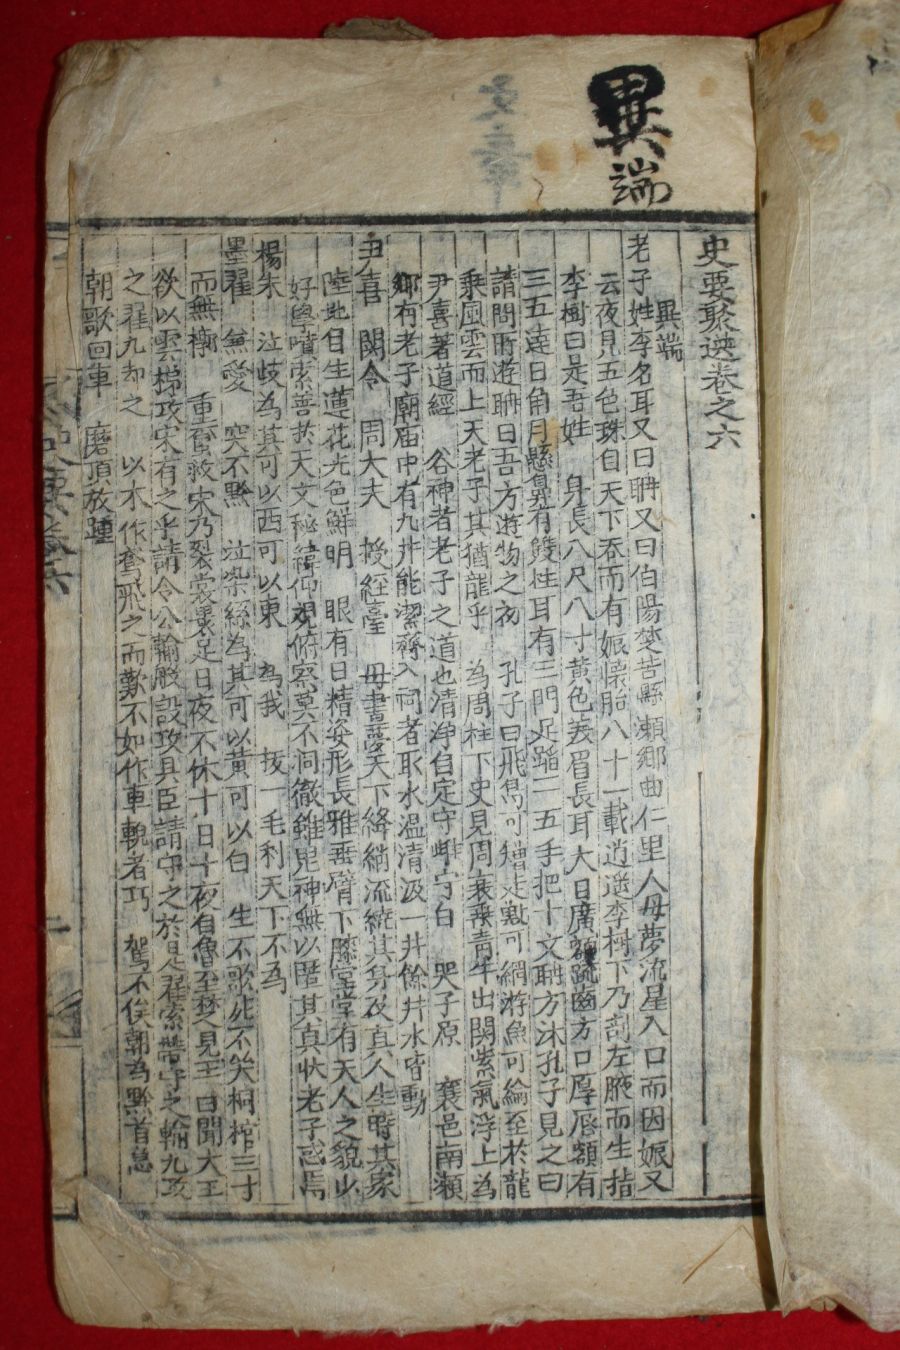 異端
史要聚選卷之六
異端
老子姓李名耳又曰聃又曰伯陽楚苦縣瀬鄉曲仁里人母夢流星入口而因娠又
云夜見五色珠自天下吞而有娠懷胎八十一載逍遥李樹下乃剖左腋而生指
李樹曰是吾姓 身長八尺八寸黃色美眉長耳大目廣額踈齒方口厚唇額有
三五達日角月懸鼻有雙柱耳有三門足蹈二五手把十文聃方沐孔子見之曰
請問所遊聃曰吾方遊物之初 孔子曰飛鳥可矰走獸可網游魚可綸至於龍
乘風雲而上天老子其猶龍乎 為周柱下史見周衰乘青牛出関紫氣浮上為
尹喜著道經 谷神者老子之道也清淨自定守雌守白 哭子原 襄邑南瀬
鄉有老子廟庙中有九井能潔齋入祠者取水温清汲一井餘井水皆動
尹喜 関令 周大夫 授經臺 母晝夢天下絳綃流繞其身及真人生時其家
陸地自生蓮花光色鮮明 眼有日精姿形長雅垂臂下膝堂堂有天人之貌少
好學墳索善於天文秘緯仰觀俯察莫不洞徹雖鬼神無以匿其真状老子惑焉
楊朱 泣歧為其可以西可以東 為我 拔一毛利天下不為
墨翟 兼愛 突不黔 泣染絲為其可以黃可以白 生不歌死不笑桐棺三寸
而無槨 重蠒救宋乃裂裳裹足日夜不休十日十夜自魯至楚見王曰聞大王
欲以雲梯攻宋有之乎請令公輪般設攻具臣請守之於是翟索帶守之輪九攻
之翟九却之 以木作鳶飛之而歎不如作車輗者巧 駕不俟朝為黔首急
朝歌回車 磨頂放踵